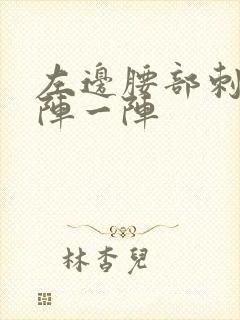 左邊腰部刺
陣一陣
林杏兒